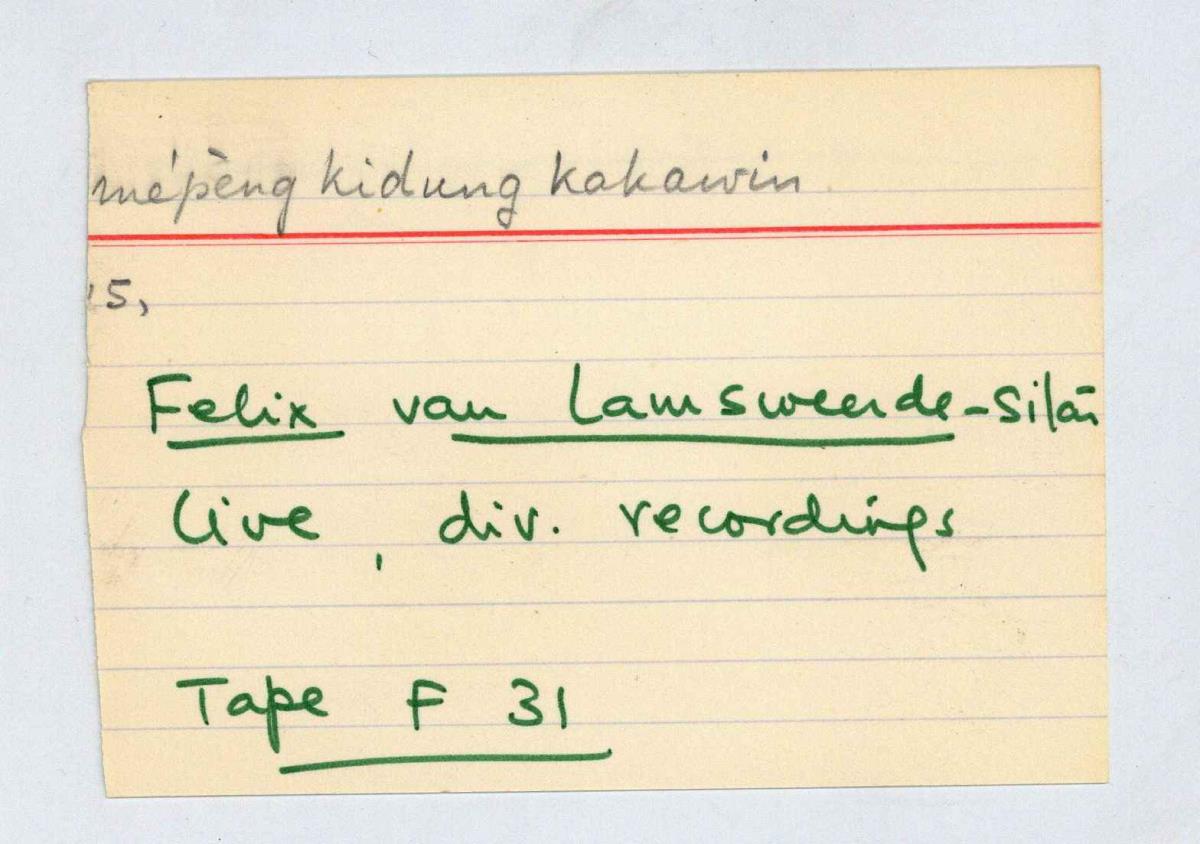 mépèng kidung kakawin
15,
Felix van Lamsweerde-sitār
live, div. recordings
Tape F 31